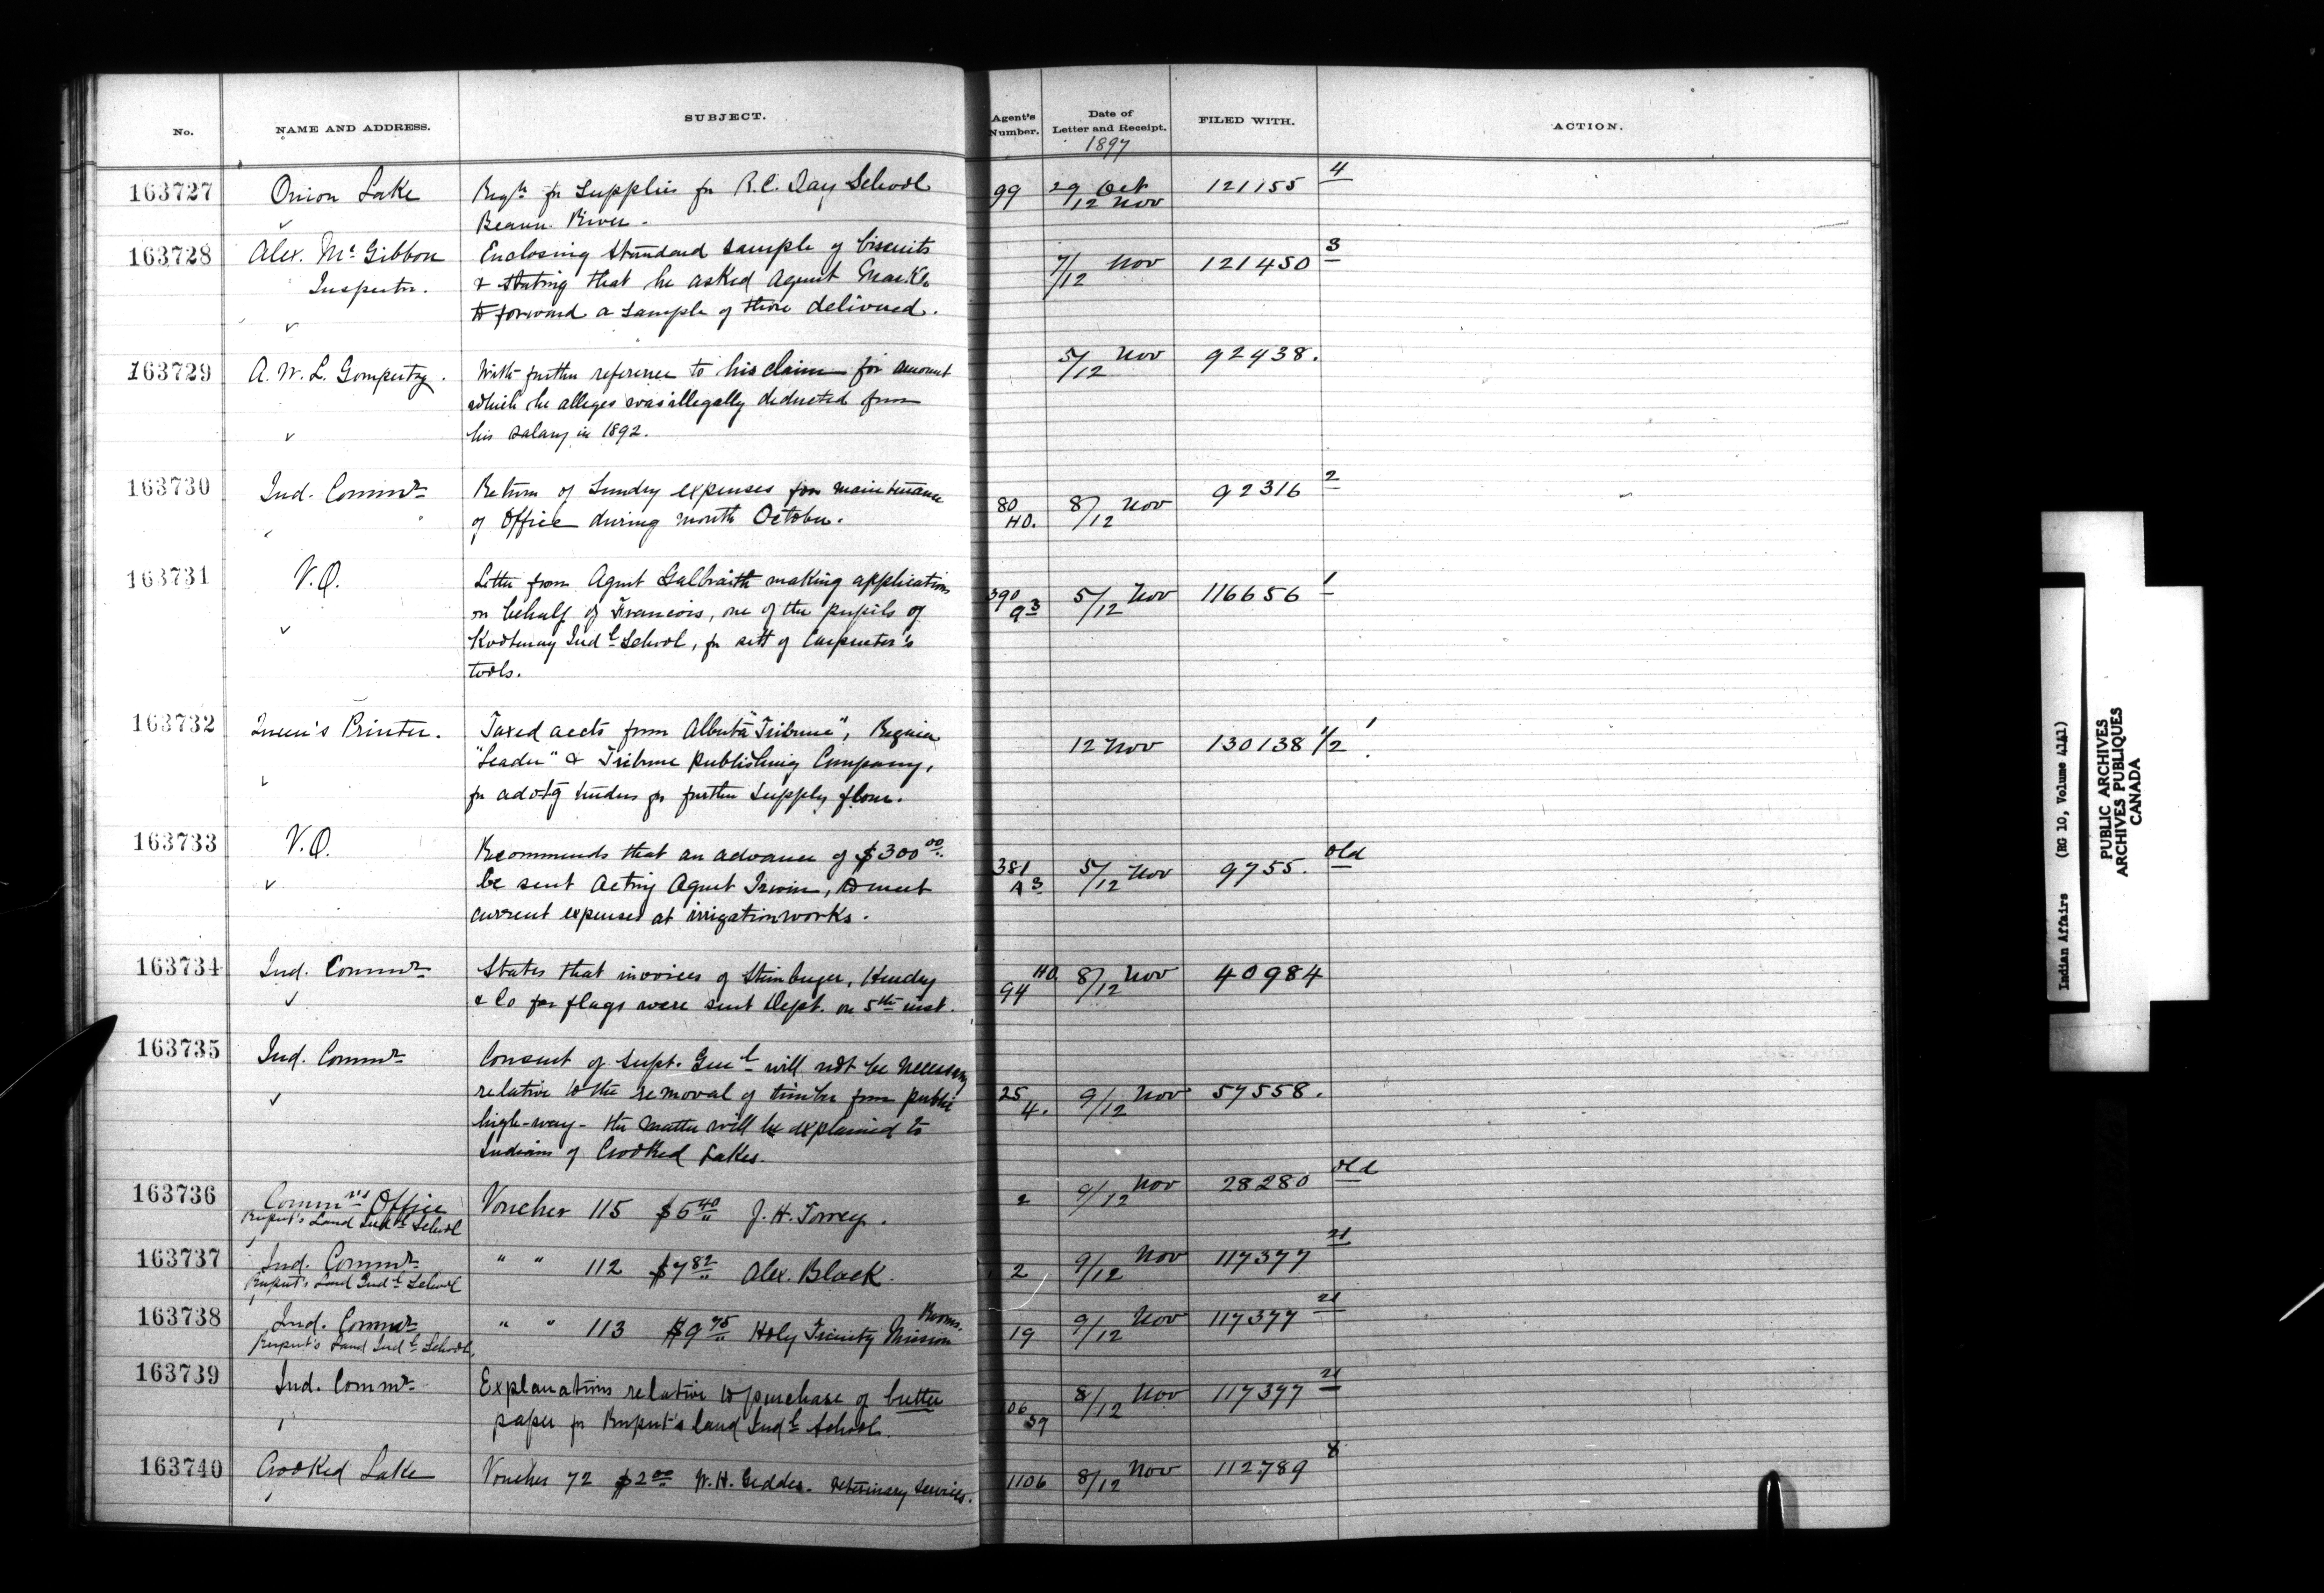 No. NAME AND ADDRESS. SUBJECT. Agent's Number. Date of Letter and Receipt. FILED WITH. ACTION.
1897
163727 Onion Lake Reqn for Supplies for R.C. Day School 99 29 Oct 121155 4
Beaver River. 12 Nov
163728 Alex. McGibbon Enclosing Standard sample of biscuits 7/12 Nov 121450 3
Inspector. & stating that he asked Agent Markle
to forward a sample of those delivered.
163729 A. W. L. Gompertz. With further reference to his claim for amount 5/12 Nov 92438.
which he alleges was illegally deducted from
his salary in 1892.
163730 Ind. Commr Return of Sundry expenses for maintenance 80 HO. 8/12 Nov 92316 2
of Office during month October.
163731 V.O. Letter from Agent Galbraith making application 390 93 5/12 Nov 116656 1
on behalf of Francois, one of the pupils of
Kootenay Indl School, for sett of Carpenter's
tools.
163732 Queen's Printer. Taxed accts from Alberta "Tribune", Regina 12 Nov 130138 1/2 1
"Leader" & Tribune Publishing Company,
for advtg tenders for further supply flour.
163733 V.O. Recommends that an advance of $300 00 381 A 3 5/12 Nov 9755. old
be sent Acting Agent Irwin, to meet
current expenses at irrigation works.
163734 Ind. Commr States that invoices of Steinberger, Hendry 94 HO 8/12 Nov 40984
& Co for flags were sent Dept. on 5th inst.
163735 Ind. Commr Consent of Supt. Genl will not be necessary
relative to the removal of timber from public 25 4. 9/12 Nov 57558.
high-way - the matter will be explained to
Indians of Crooked Lakes.
163736 Commrs Office Voucher 115 $5 40 J. H. Torrey. 2 9/12 Nov 28280 old
Rupert's Land Indl School
163737 Ind. Commr " " 112 $7 82 Alex. Black. 2 9/12 Nov 117377 21
Rupert's Land Indl School
163738 Ind. Commr " " 113 $9 75 Holy Trinity Mission Rooms. 19 9/12 Nov 117377 21
Rupert's Land Indl School,
163739 Ind. Commr Explanations relative to purchase of butter 06 39 8/12 Nov 117377 21
paper for Rupert's land Indl School.
163740 Crooked Lake Voucher 72 $2 00 W. H. Geddes. Veterinary Services. 1106 8/12 Nov 112789 8
Indian Affairs (RG 10, Volume 4141)
PUBLIC ARCHIVES
ARCHIVES PUBLIQUES
CANADA